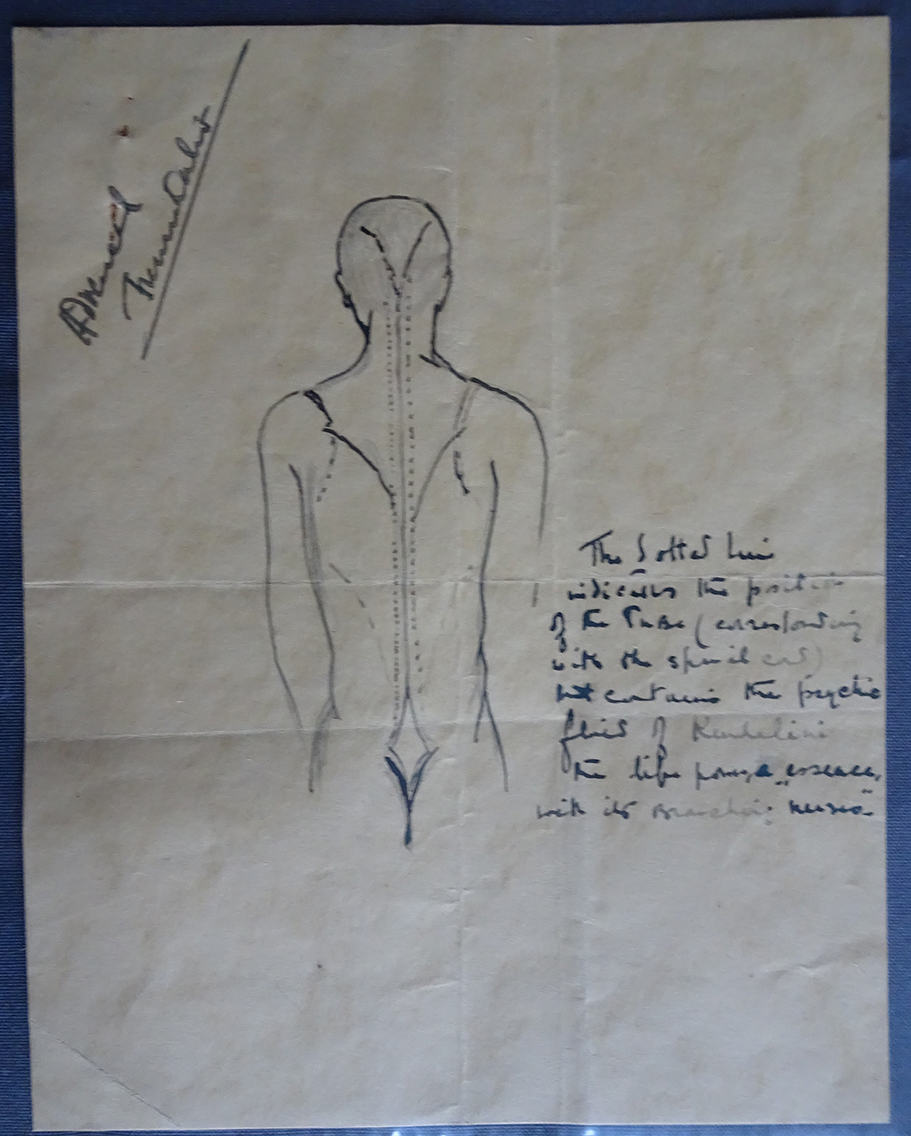 Advanced
The dotted line
indicates the position
of the Tube (corresponding
with the spinal cord)
but contains the psychic
fluid of Kundalini
the life power essence,
with its branching "nerves"